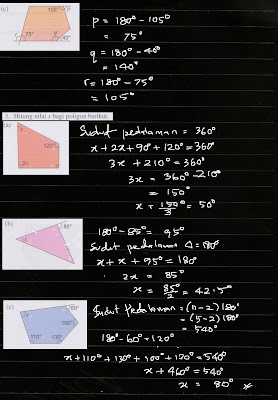 (c)
105° p
r 75° q 40°
p = 180° - 105°
= 75°
q = 180° - 40°
= 140°
r = 180° - 75°
= 105°
3. Hitung nilai x bagi poligon berikut.
(a)
x
120°
2x
Sudut pedalaman = 360°
x + 2x + 90° + 120° = 360°
3x + 210° = 360°
3x = 360° - 210°
= 150°
x = 150°/3 = 50°
(b)
85°
x
x
180° - 85° = 95°
Sudut pedalaman Δ = 180°
x + x + 95° = 180°
2x = 85°
x = 85°/2 = 42.5°
(c)
60°
x
100°
110° 130°
Sudut Pedalaman = (n-2)180°
= (5-2)180°
= 540°
180° - 60° = 120°
x + 110° + 130° + 100° + 120° = 540°
x + 460° = 540°
x = 80°